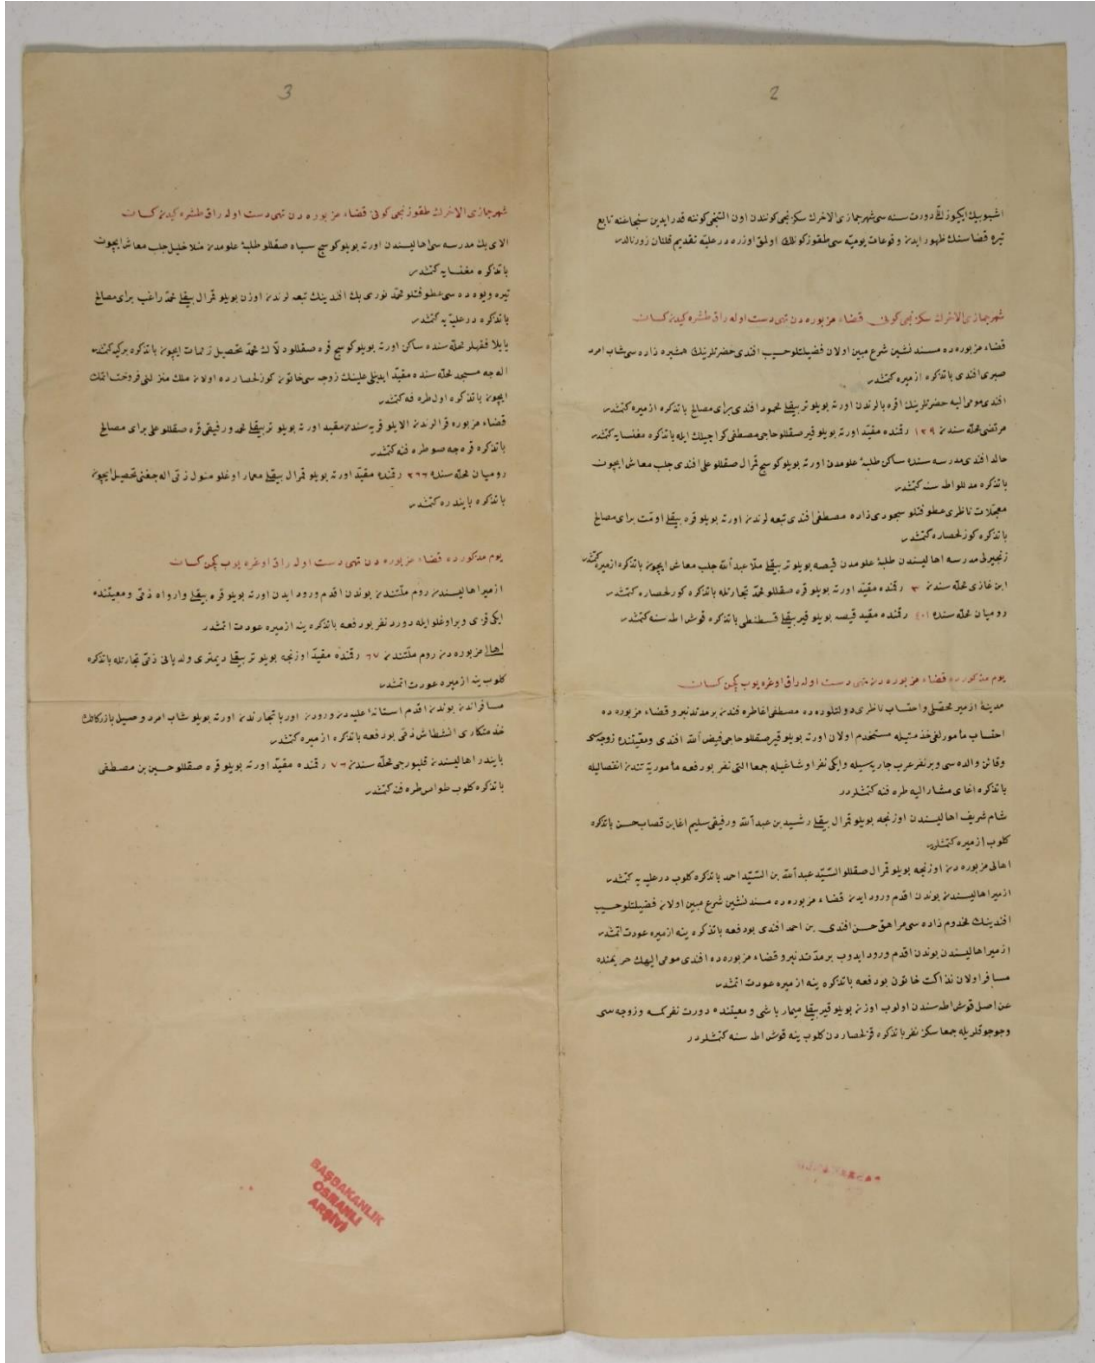 2
اشبو بيك ايكيوز قرق دورت سنه سى شهر جمازى الاخرك سكزنجى كونندن اون التنجى كوننه قدر ايدين سنجاغنه تابع
تيره قضاسنك ظهور ايدن وقوعات يوميه سى طقوز كونلك اولمق اوزره در عليه تقديم قلنان ژورنالدر
شهر جمازى الاخرك سكزنجى كونى قضاء مزبوره دن تهى دست اوله راق طشره كيدن كسان
قضاء مزبوره ده مسند نشين شرع مبين اولان فضيلتلو حسيب افندى حضرتلرينك همشيره زاده سى شاب امرد
صبرى افندى باتذكره ازميره كتمشدر
افندى مومى اليه حضرتلرينك اقربالرندن اورته بويلو تر بيقلى محمود افندى براى مصالح باتذكره ازميره كتمشدر
مرتضى محله سندن ١٢٩ رقمنده مقيد اورته بويلو قير صقللو حاجى مصطفى كراجيلك ايله باتذكره مغنسايه كتمشدر
خالد افندى مدرسه سنده ساكن طلبۀ علومدن اورته بويلو كوسج قمرال صقللو على افندى جلب معاش ايچون
باتذكره مدللو اطه سنه كتمشدر
معجلات ناظرى عطوفتلو مصطفى افندى تبعه لرندن اورته بويلو قره بيقلى براى مصالح
باتذكره كوزلحصاره كتمشدر
زنجيرلى مدرسه اهاليسندن طلبۀ علومدن قيصه بويلو تر بيقلى ملا عبدالله جلب معاش ايچون باتذكره ازميره كتمشدر
ابن غازى محله سندن ٣ رقمنده مقيد اورته بويلو قره صقللو محمد تجارتله باتذكره كوزلحصاره كتمشدر
روميان محله سنده رقمنده مقيد قيصه بويلو قير بيقلى قسطنطى باتذكره قوش اطه سنه كتمشدر
يوم مذكورده قضاء مزبوره دن تهى دست اوله راق اوغره يوب كچن كسان
مدينۀ ازمير محصلى واحتساب ناظرى دولتلو مصطفى اغا طرفندن بر مدتدنبرو قضاء مزبوره ده
احتساب مأمورلغى خدمتيله مستخدم اولان اورته بويلو قير صقللو حاجى فيض الله افندى ومعيتنده زوجه سى
وقائن والده سى وبر نفر عرب جاريه سيله وايكى نفر اوشاغيله جمعا التى نفر بو دفعه مأموريتندن انفصاليله
باتذكره اغاى مشار اليه طرفنه كتمشلردر
شام شريف اهاليسندن اوزنجه بويلو قمرال بيقلى رشيد بن عبدالله ورفيقى سليم اغا ابن قصاب حسن باتذكره
كلوب ازميره كتمشلردر
اهالى مزبوره دن اوزنجه بويلو قمرال صقللو السيد عبدالله بن السيد احمد باتذكره كلوب درعليه يه كتمشدر
ازمير اهاليسندن بوندن اقدم ورود ايدن قضاء مزبوره ده مسند نشين شرع مبين اولان فضيلتلو حسيب
افندينك مخدوم زاده سى مراهق حسن افندى بن احمد افندى بو دفعه باتذكره ينه ازميره عودت اتمشدر
ازمير اهاليسندن بوندن اقدم ورود ايدوب بر مدتدنبرو قضاء مزبوره ده افندى مومى اليهك حريمنده
مسافر اولان نذاكت خاتون بو دفعه باتذكره ينه ازميره عودت اتمشدر
عن اصل قوش اطه سندن اولوب اوزن بويلو قير بيقلى ميمار باشى ومعيتنده دورت نفر كمسه وزوجه سى
وجوجوقلريله جمعا سكز نفر باتذكره قزلحصاردن كلوب ينه قوش اطه سنه كتمشلردر
3
شهر جمازى الاخرك طقوزنجى كونى قضاء مزبوره دن تهى دست اوله راق طشره كيدن كسان
الاى بك مدرسه سى اهاليسندن اورته بويلو كوسج سياه صقللو طلبۀ علومدن منلا خليل جلب معاش ايچون
باتذكره مغنسايه كتمشدر
تيره ويوه ده سى عطوفتلو محمد نورى بك افندينك تبعه لرندن اوزن بويلو قمرال بيقلى محمد راغب براى مصالح
باتذكره درعليه يه كتمشدر
يايلا فقيلر محله سنده ساكن اورته بويلو كوسج قره صقللو دلاك محمد تحصيل ايچون باتذكره بركيه كتمشدر
الجه مسجد محله سنده مقيد على نك زوجه سى خاتون كوزلحصارده اولان ملك منزلنى فروخت اتمك
ايچون باتذكره اول طرفه كتمشدر
قضاء مزبوره قرالرندن الايلو قريه سندن مقيد اورته بويلو تر بيقلى محمد ورفيقى قره صقللو على براى مصالح
باتذكره قره جه صو طرفنه كتمشدر
روميان محله سنده ٢٦٦ رقمنده مقيد اورته بويلو قمرال بيقلى معمار اوغلو ذمى اله جغنى تحصيل ايچون
باتذكره بايندره كتمشدر
يوم مذكورده قضاء مزبوره دن تهى دست اوله راق اوغره يوب كچن كسان
ازمير اهاليسندن روم ملتندن بوندن اقدم ورود ايدن اورته بويلو قره بيقلى ذمى ومعيتنده
ايكى قزى وبر اوغلو ايله دورد نفر بو دفعه باتذكره ينه ازميره عودت اتمشدر
اهالى مزبوره دن روم ملتندن ٦٧ رقمنده مقيد اوزنجه بويلو تر بيقلى ديمترى ولد يانى ذمى تجارتله باتذكره
كلوب ينه ازميره عودت اتمشدر
مسافراندن بوندن اقدم استانۀ عليه دن ورودن اورپا تجارندن اورته بويلو شاب امرد بازركانك
خدمتكارى ذمى بو دفعه باتذكره ازميره كتمشدر
بايندر اهاليسندن محله سندن ٧٦ رقمنده مقيد اورته بويلو قره صقللو حسين بن مصطفى
باتذكره كلوب طواس طرفنه كتمشدر
BAŞBAKANLIK
OSMANLI
ARŞİVİ